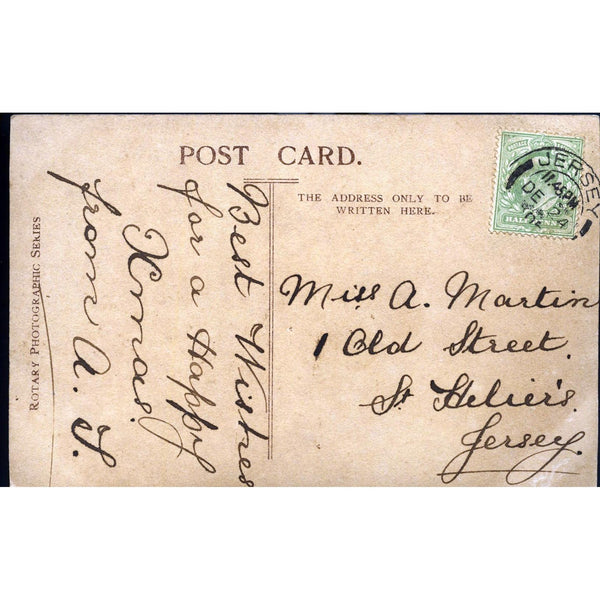 POST CARD.
THE ADDRESS ONLY TO BE
WRITTEN HERE.
ROTARY PHOTOGRAPHIC SERIES
Best Wishes
for a Happy
Xmas.
from A.
Miss A. Martin
1 Old Street.
St Helier's.
Jersey.
JERSEY
11.45PM
DE 24
HALFPENNY